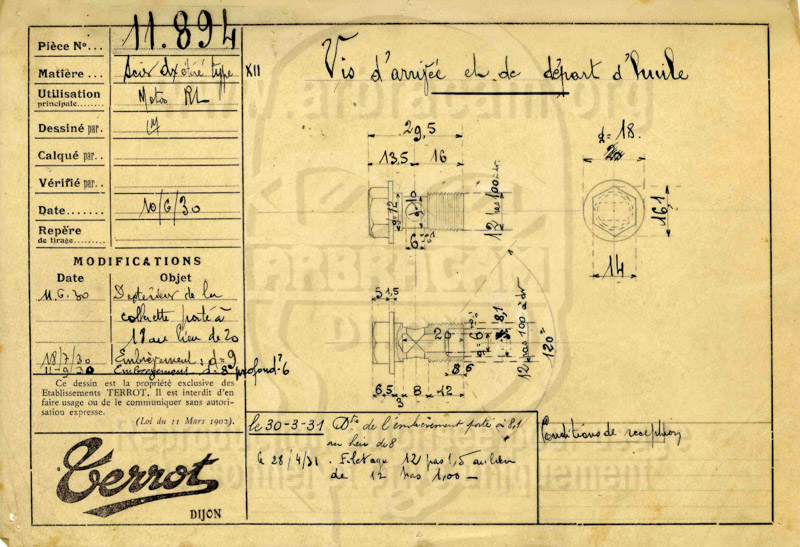 Pièce No... 11.894
Matière... Acier dxétiré type XII
Utilisation principale... Motos RL
Dessiné par.
Calqué par..
Vérifié par..
Date....... 10/6/30
Repère de tirage.....
MODIFICATIONS
Date Objet
11.6.30
collerette porté à
18 au lieu de 20
18/7/30 Embrèvement: d=9
11-9/30 Embrèvement d=8 profond.r 6
Ce dessin est la propriété exclusive des
Etablissements TERROT, Il est interdit d'en
faire usage ou de le communiquer sans autori-
sation expresse.
(Loi du 11 Mars 1902).
Terrot
DIJON
Vis d'arrivée et de départ d'huile
29,5
13,5 16
d=12
d=10
12 pas 100 à dr.
6
d=18.
20
16,1
14
5 1,5
20
d=6
8,1
12 pas 100 à dr
120°
8 6
6,5 3 8 12
le 30-3-31 Dtre de l'embrèvement porté à 8,1
au lieu de 8
le 28/4/31. Filetage 12 pas 1,5 au lieu
de 12 pas 1,00 —
Conditions de reception
www.arbracam.org
ARBRACAM